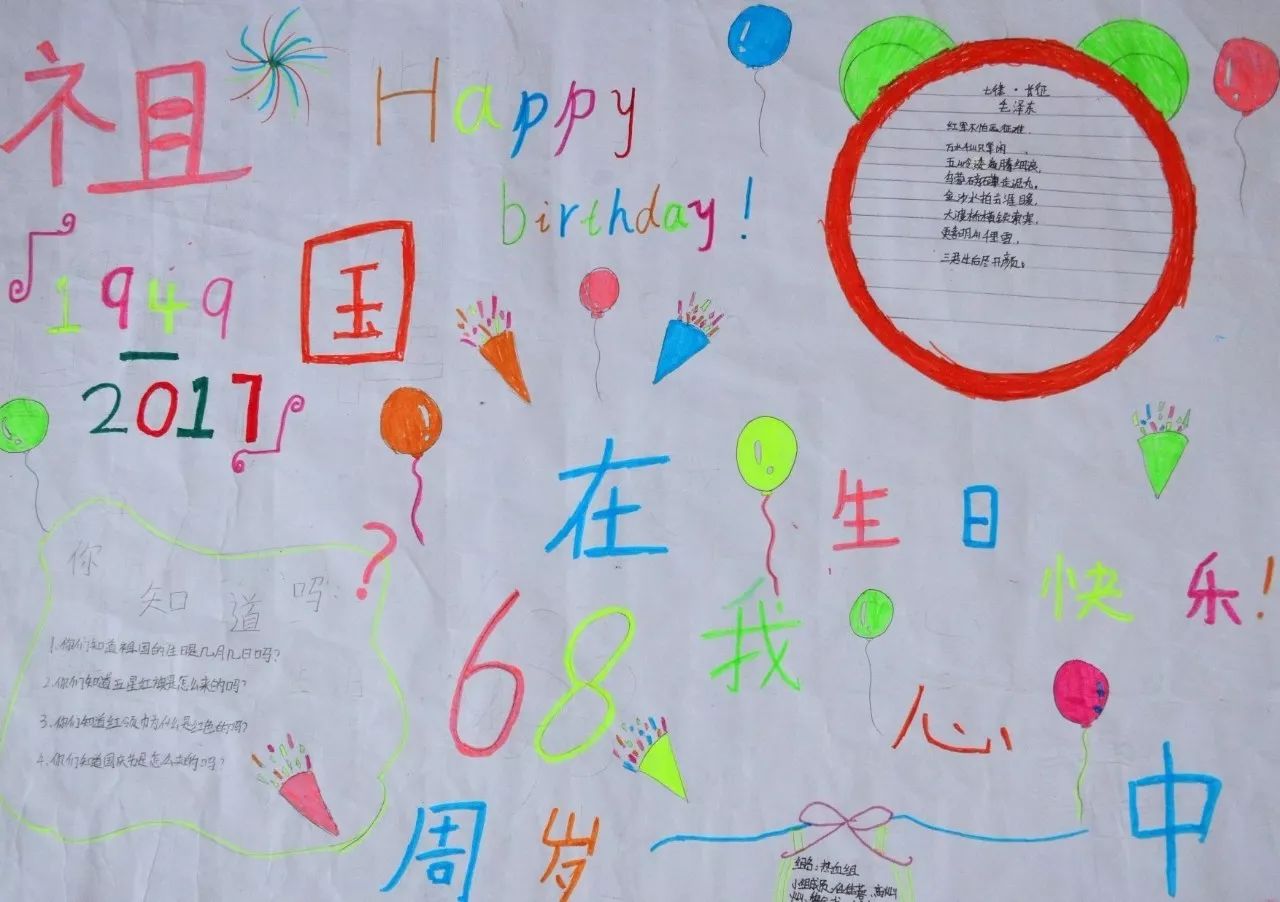 祖国在我心中
Happy
birthday!
1949
2017
七律·长征
毛泽东
红军不怕远征难,
万水千山只等闲,
五岭逶迤腾细浪,
乌蒙磅礴走泥丸。
金沙水拍云崖暖,
大渡桥横铁索寒,
更喜岷山千里雪,
三军过后尽开颜。
生日
快乐!
68
周岁
你知道吗?
1.你们知道祖国的生日是几月几日吗?
2.你们知道五星红旗是怎么来的吗?
3.你们知道红领巾为什么是红色的吗?
4.你们知道国庆节是怎么来的吗?
组名:热血组
小组成员